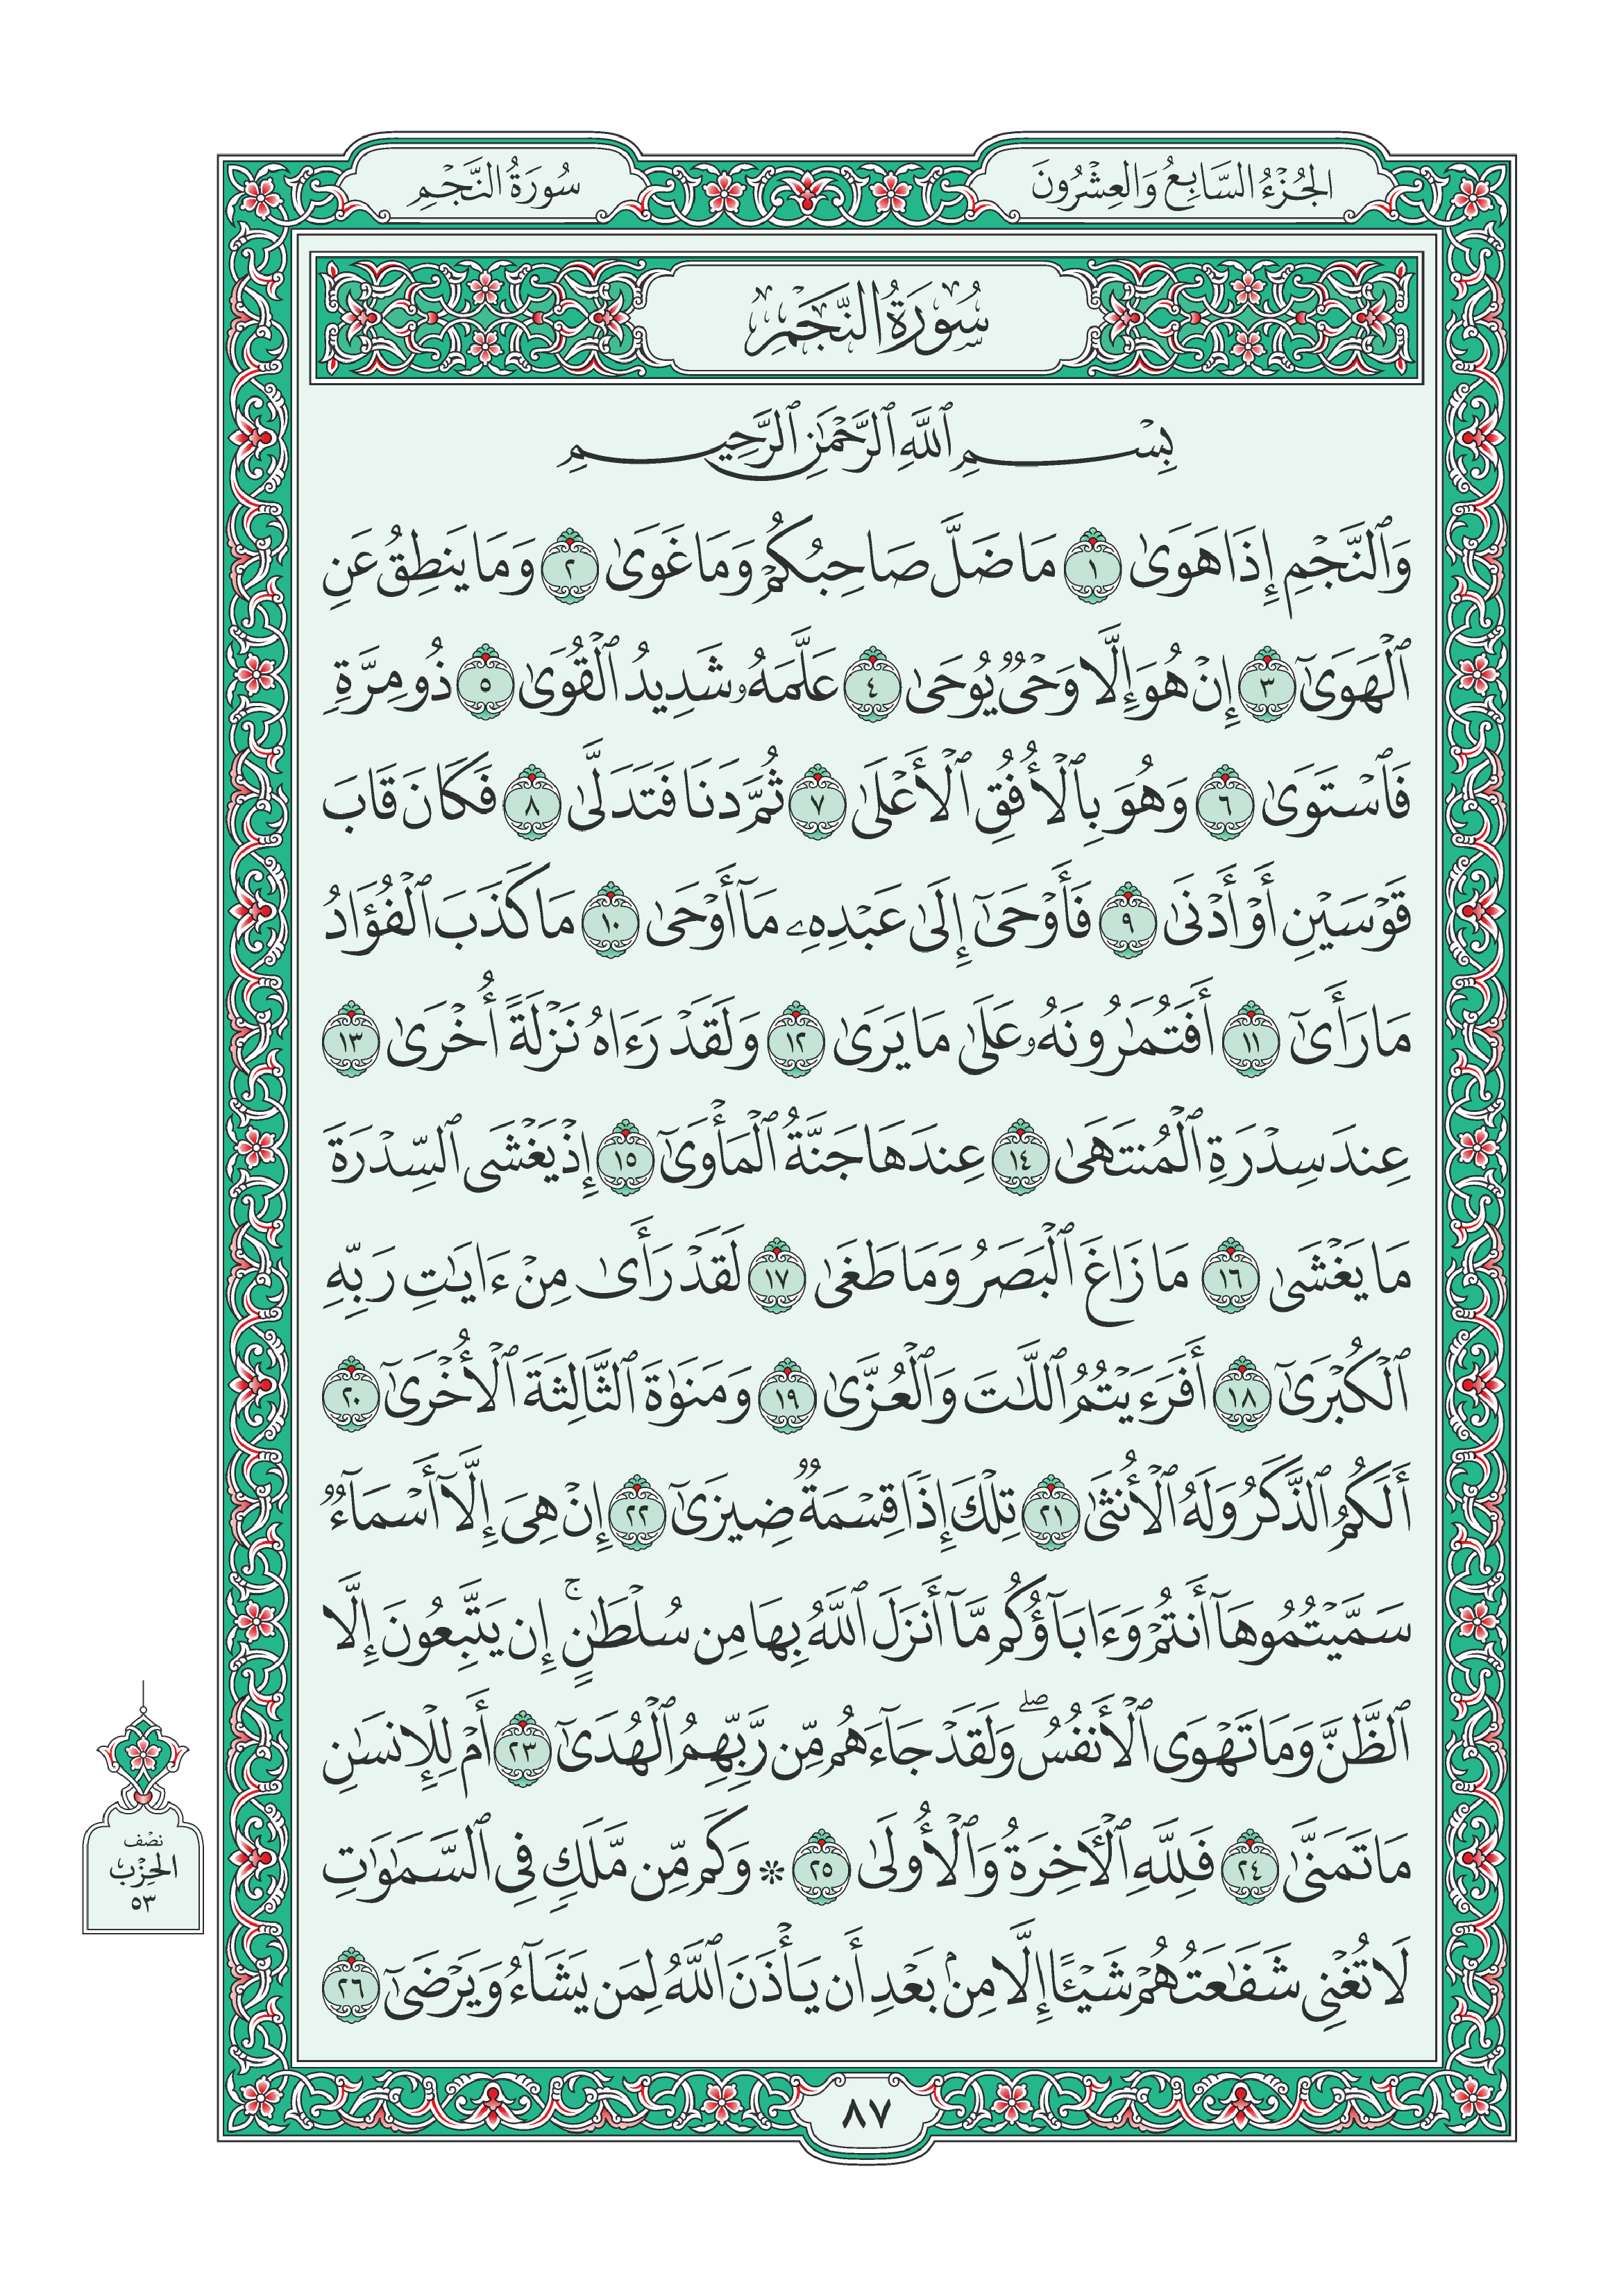 الجُزْءُ السَّابِعُ وَالعِشْرُونَ
سُورَةُ النَّجْمِ
سُورَةُ النَّجْمِ
بِسْمِ ٱللَّهِ ٱلرَّحْمَٰنِ ٱلرَّحِيمِ
وَٱلنَّجْمِ إِذَا هَوَىٰ ١ مَا ضَلَّ صَاحِبُكُمْ وَمَا غَوَىٰ ٢ وَمَا يَنطِقُ عَنِ
ٱلْهَوَىٰٓ ٣ إِنْ هُوَ إِلَّا وَحْيٌ يُوحَىٰ ٤ عَلَّمَهُۥ شَدِيدُ ٱلْقُوَىٰ ٥ ذُو مِرَّةٍ
فَٱسْتَوَىٰ ٦ وَهُوَ بِٱلْأُفُقِ ٱلْأَعْلَىٰ ٧ ثُمَّ دَنَا فَتَدَلَّىٰ ٨ فَكَانَ قَابَ
قَوْسَيْنِ أَوْ أَدْنَىٰ ٩ فَأَوْحَىٰٓ إِلَىٰ عَبْدِهِۦ مَآ أَوْحَىٰ ١٠ مَا كَذَبَ ٱلْفُؤَادُ
مَا رَأَىٰٓ ١١ أَفَتُمَٰرُونَهُۥ عَلَىٰ مَا يَرَىٰ ١٢ وَلَقَدْ رَءَاهُ نَزْلَةً أُخْرَىٰ ١٣
عِندَ سِدْرَةِ ٱلْمُنتَهَىٰ ١٤ عِندَهَا جَنَّةُ ٱلْمَأْوَىٰٓ ١٥ إِذْ يَغْشَى ٱلسِّدْرَةَ
مَا يَغْشَىٰ ١٦ مَا زَاغَ ٱلْبَصَرُ وَمَا طَغَىٰ ١٧ لَقَدْ رَأَىٰ مِنْ ءَايَٰتِ رَبِّهِ
ٱلْكُبْرَىٰٓ ١٨ أَفَرَءَيْتُمُ ٱللَّٰتَ وَٱلْعُزَّىٰ ١٩ وَمَنَوٰةَ ٱلثَّالِثَةَ ٱلْأُخْرَىٰٓ ٢٠
أَلَكُمُ ٱلذَّكَرُ وَلَهُ ٱلْأُنثَىٰ ٢١ تِلْكَ إِذًا قِسْمَةٌ ضِيزَىٰٓ ٢٢ إِنْ هِيَ إِلَّآ أَسْمَآءٌ
سَمَّيْتُمُوهَآ أَنتُمْ وَءَابَآؤُكُم مَّآ أَنزَلَ ٱللَّهُ بِهَا مِن سُلْطَٰنٍ ۚ إِن يَتَّبِعُونَ إِلَّا
ٱلظَّنَّ وَمَا تَهْوَى ٱلْأَنفُسُ ۖ وَلَقَدْ جَآءَهُم مِّن رَّبِّهِمُ ٱلْهُدَىٰٓ ٢٣ أَمْ لِلْإِنسَٰنِ
مَا تَمَنَّىٰ ٢٤ فَلِلَّهِ ٱلْأَخِرَةُ وَٱلْأُولَىٰ ٢٥ * وَكَم مِّن مَّلَكٍ فِي ٱلسَّمَٰوَٰتِ
لَا تُغْنِي شَفَٰعَتُهُمْ شَيْـًٔا إِلَّا مِنۢ بَعْدِ أَن يَأْذَنَ ٱللَّهُ لِمَن يَشَآءُ وَيَرْضَىٰٓ ٢٦
نصف
الحِزْب
٥٣
٨٧